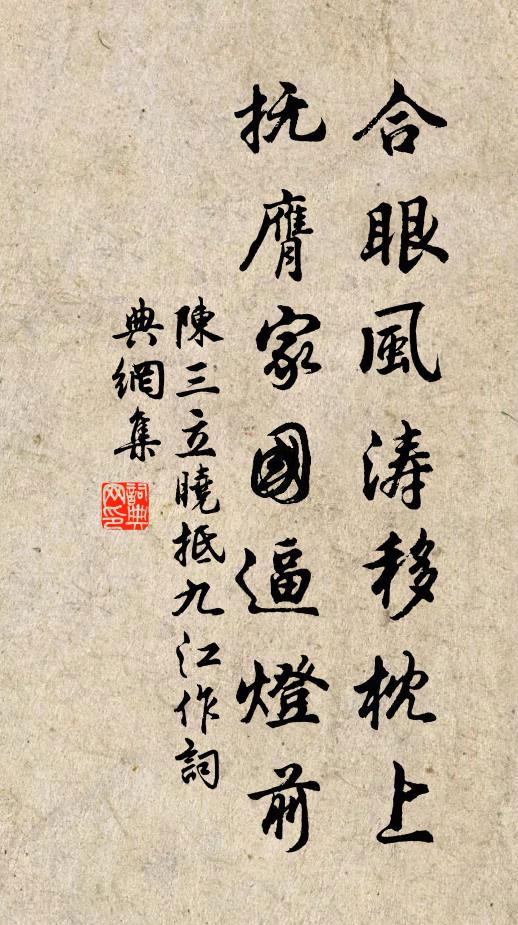 合眼風涛移枕上
抚膺家國逼燈前
陳三立曉抵九江作詞
典網集
詞典
网印